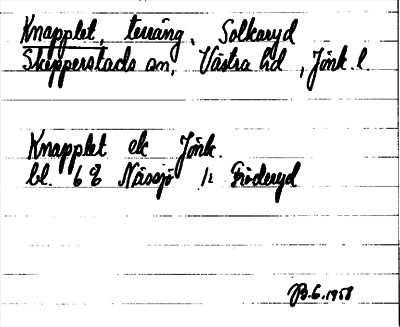 Knapplet, terräng, Solkaryd
Skepperstads sn, Västra hd, Jönk. l.
Knapplet ek Jönk.
bl. 68 Nässjö
B. 6. 1958